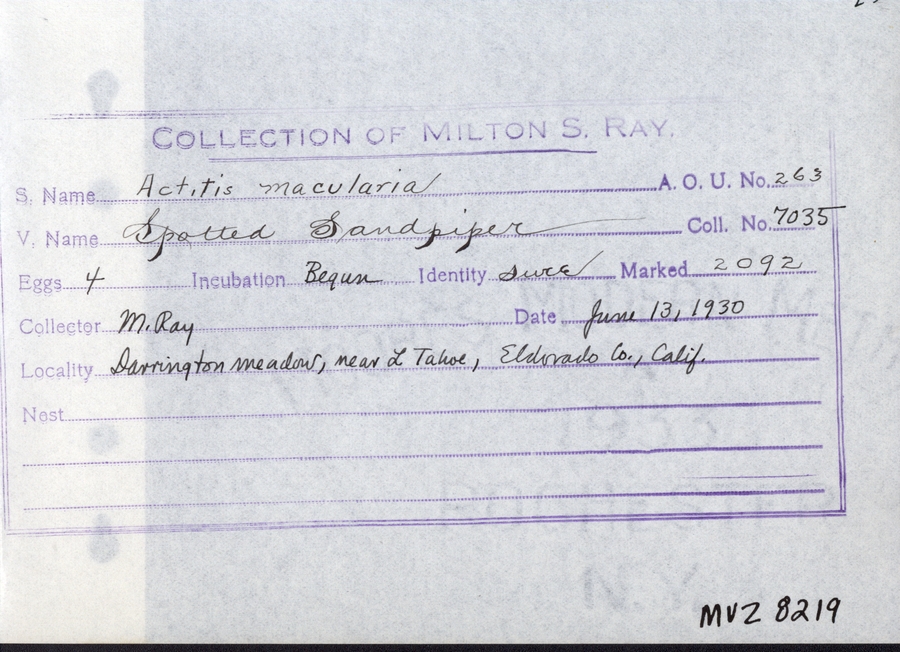 COLLECTION OF MILTON S. RAY.
S. Name Actitis macularia A. O. U. No. 263
V. Name Spotted Sandpiper Coll. No. 7035
Eggs 4 Incubation Begun Identity sure Marked 2092
Collector M. Ray Date June 13, 1930
Locality Darrington meadow, near L Tahoe, Eldorado Co., Calif.
Nest
MVZ 8219